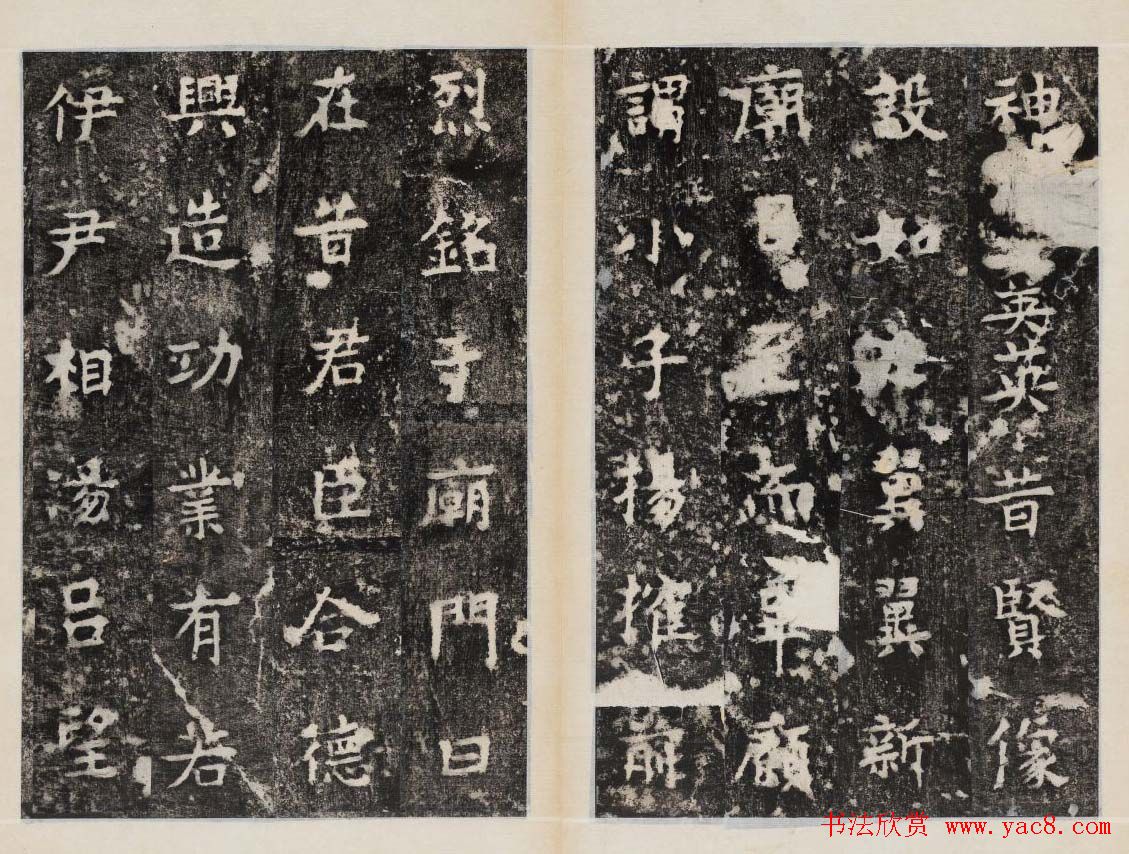 神英英昔賢像
設如冀翼新
廟而顧
謂小子揚搉前
烈銘寺廟門曰
在昔君臣合德
興造功業有若
伊尹相湯呂望
书法欣赏 www.yac8.com